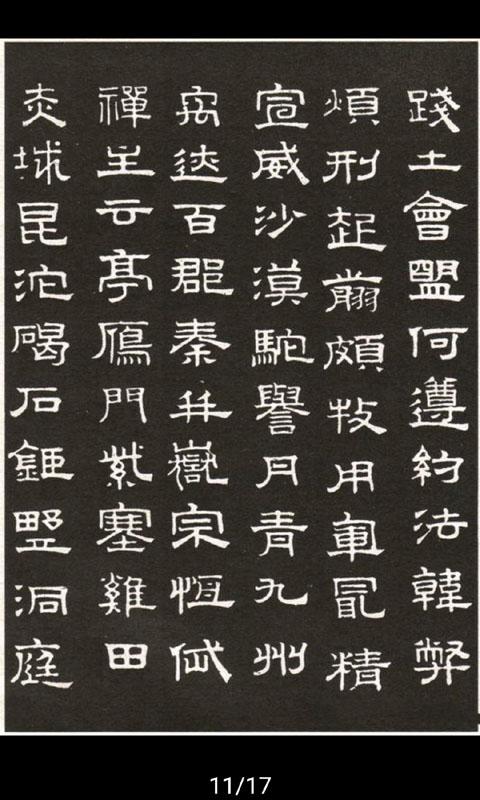 踐土會盟何遵約法韓弊
煩刑起翦頗牧用軍冣精
宣威沙漠馳譽丹青九州
禹迹百郡秦并嶽宗恆岱
禪主云亭鴈門紫塞雞田
赤城昆池碣石鉅野洞庭
11/17